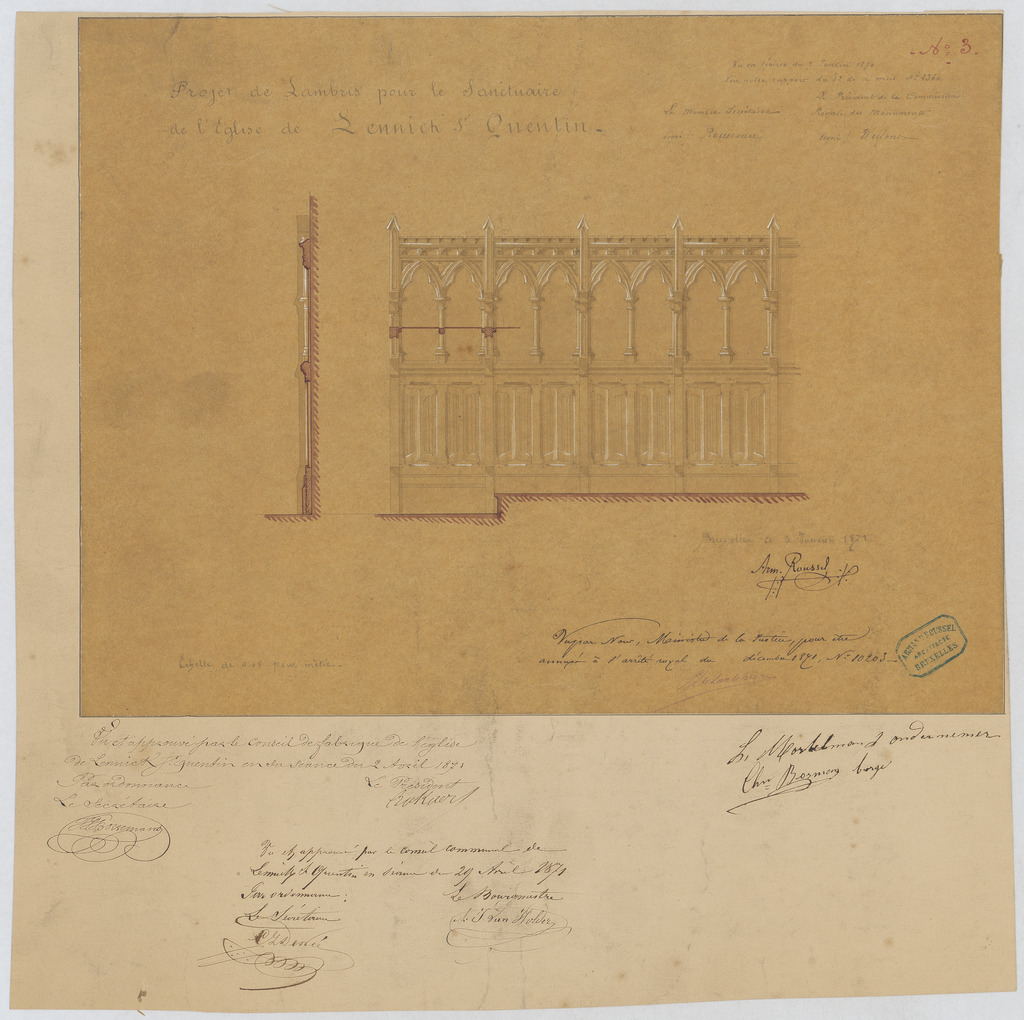 N° 3.
Projet de Lambris pour le Sanctuaire
de l'Eglise de Lennick St Quentin.
Le Membre Secrétaire
Le Président de la Commission
Royale des Monuments
Signé: Rousseau
Signé: Wellens
Bruxelles le 3 Janvier 1871
Arm. Roussel
Vu par Nous, Ministre de la Justice, pour être
annexé à l'arrêté royal du décembre 1871, N° 10203
ARMAND ROUSSEL
ARCHITECTE
BRUXELLES
Echelle de 0.05 pour mètre.
Vu et approuvé par le Conseil de fabrique de l'église
de Lennick St Quentin en sa séance du 2 Avril 1871
Par ordonnance
Le Président
Le Secrétaire
L. Mortelmans ondernemer
Chr. borge
Vu et approuvé par le Conseil communal de
Lennick St Quentin en séance du 29 Avril 1871
Par ordonnance:
Le Bourgmestre
Le Secrétaire